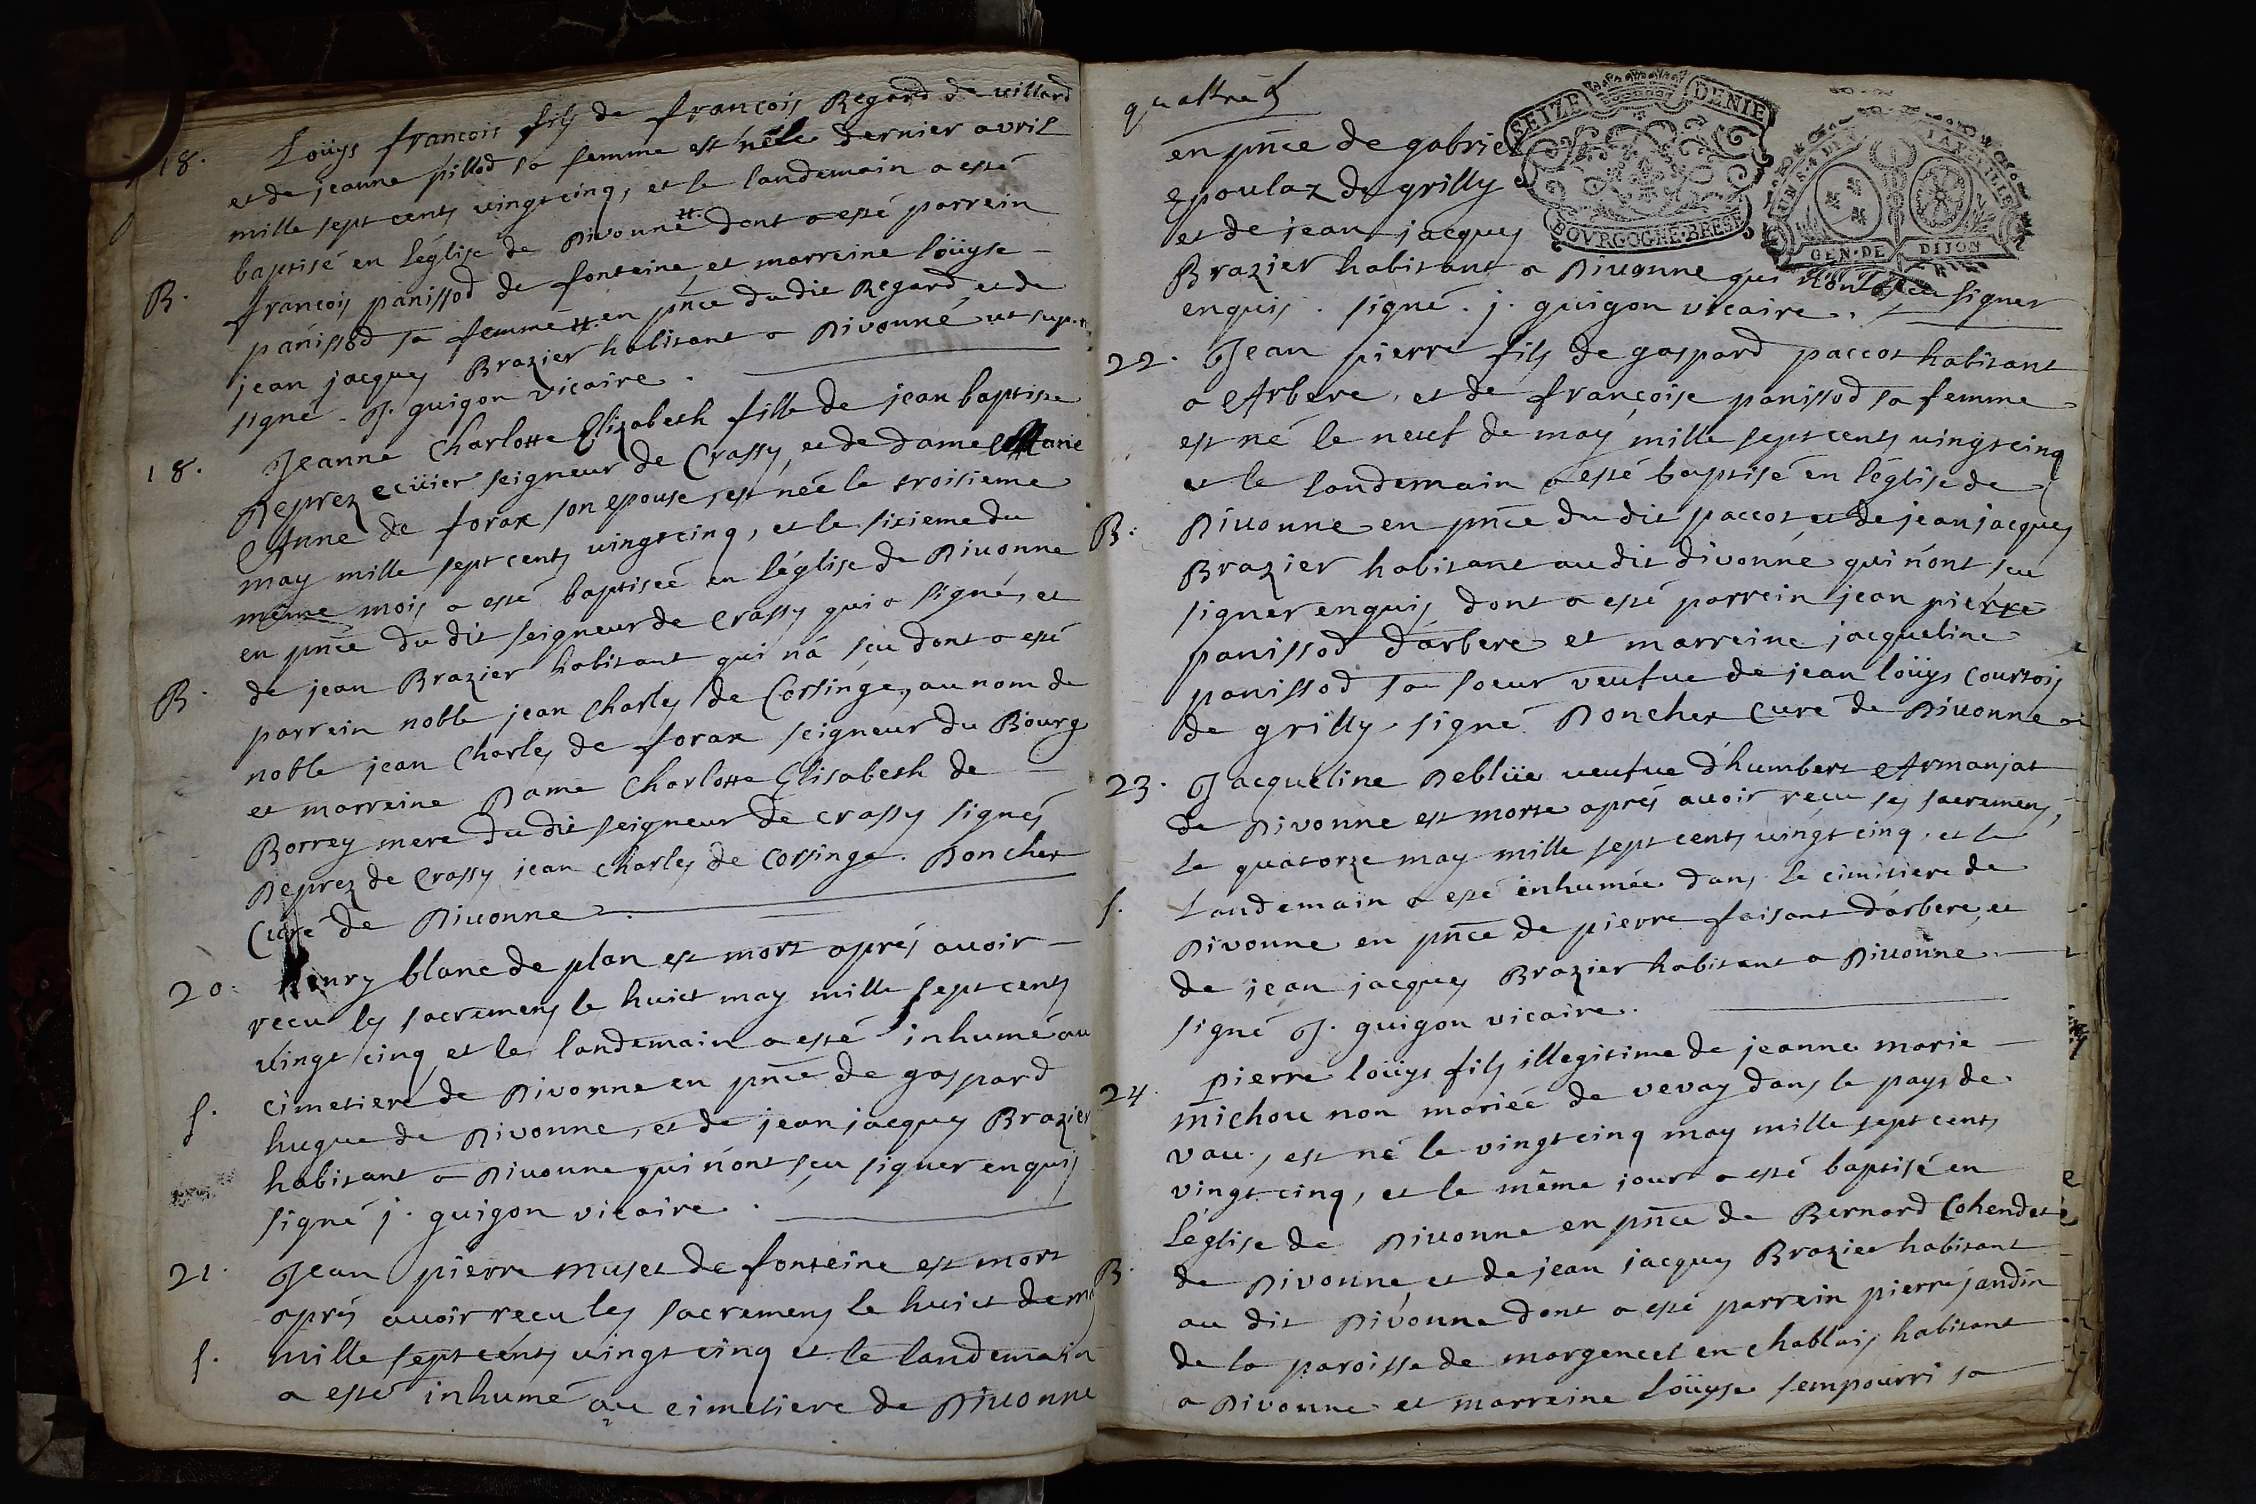 18. Loüys françois fils de françois Regard de villard
et de jeanne pillod sa femme est né le dernier avril
mille sept cents vingt cinq, et le landemain a esté
baptisé en l'église de Divonne # dont a esté parrein
B. françois panissod de fonteine, et marreine loüyse
panissod sa femme # en pñce du dit Regard, et de
jean jacques Brazier habitant a Divonne ut sup.
signé. J. guigon vicaire.
18. Jeanne Charlotte Elizabeth fille de jean baptiste
Deprez ecüier seigneur de Crassy, et de dame Marie
Anne de forax son epouse, est née le troisieme
may mille sept cents vingt cinq, et le sixieme du
même mois a esté baptiseé en l'église de Divonne
en pñce du dit seigneur de Crassy qui a signé, et
B. de jean Brazier habitant qui n'a sçu dont a esté
parrein noble jean Charles de Corsinge, au nom de
noble jean Charles de forax seigneur du Bourg
et marreine Dame Charlotte Elisabeth de
Borrey mere du dit seigneur de crassy signés
Deprez de Crassy jean Charles de Corsinge. Doncher
Curé de Divonne.
20. henry blanc de plan est mort aprés avoir
recu les sacremens le huict may mille sept cents
vingt cinq et le landemain a esté inhumé au
cimetiere de Divonne en pñce de gaspard
s. hugue de Divonne, et de jean jacques Brazier
habitant a Divonne qui n'ont sçu signer enquis
signé j. guigon vicaire.
21. Jean pierre muset de fonteine est mort
aprés avoir recu les sacremens le huict de
s. mille sept cents vingt cinq et le landemain
a esté inhumé au cimetiere de Divonne
SEIZE DENIE
BOVRGOGNE·BRESSE
GEN·DE DIJON
en pñce de gabriel
Epoulaz de grilly
et de jean jacques
Brazier habitant a Divonne qui n'ont sçu signer
enquis. signé. j. guigon vicaire.
22. Jean pierre fils de gaspard paccot habitant
a Arbere, et de françoise panissod sa femme
est né le neuf de may mille sept cents vingt cinq
et le landemain a esté baptisé en l'église de
B. Divonne en pñce du dit paccot et de jean jacques
Brazier habitant au dit divonne qui n'ont sçu
signer enquis dont a esté parrein jean pierre
panissod d'arbere et marreine jacqueline
panissod sa soeur veufue de jean loüys courtois
de grilly. signé Doncher Curé de Divonne
23. Jacqueline Deblüe veufue d'humbert Armanjat
de Divonne est morte aprés avoir recu ses sacremens,
le quatorze may mille sept cents vingt cinq, et le
s. landemain a esté inhumée dans le cimitiere de
Divonne en pñce de pierre faisant d'arbere, et
de jean jacques Brazier habitant a Divonne.
signé J. guigon vicaire.
24. pierre loüys fils illegitime de jeanne marie
michou non mariée de vevay dans le pays de
vau, est né le vingt cinq may mille sept cents
vingt cinq, et le même jour a esté baptisé en
l'église de Divonne en pñce de Bernard Cohendet
B. de Divonne, et de jean jacques Brazier habitant
au dit Divonne dont a esté parrein pierre jandin
de la paroisse de margencel en chablais habitant
a Divonne et marreine loüyse sempourri sa